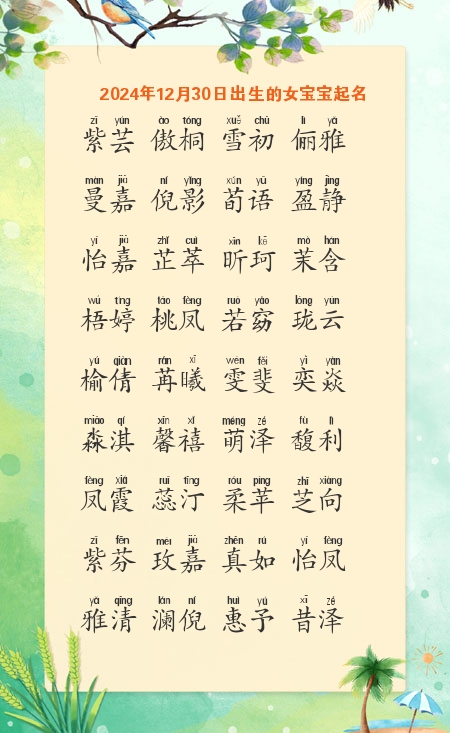 2024年12月30日出生的女宝宝起名
zǐ yún ào tóng xuě chū lì yǎ
紫芸 傲桐 雪初 俪雅
màn jiā ní yǐng xún yǔ yíng jìng
曼嘉 倪影 荀语 盈静
yí jiā zhǐ cuì xīn kē mò hán
怡嘉 芷萃 昕珂 茉含
wú tíng táo fèng ruò yǎo lóng yún
梧婷 桃凤 若窈 珑云
yú qiàn rǎn xī wén fěi yì yàn
榆倩 苒曦 雯斐 奕焱
miǎo qí xīn xǐ méng zé fù lì
淼淇 馨禧 萌泽 馥利
fèng xiá ruǐ tīng róu píng zhī xiàng
凤霞 蕊汀 柔苹 芝向
zǐ fēn méi jiā zhēn rú yí fèng
紫芬 玫嘉 真如 怡凤
yǎ qīng lán ní huì yú xī zé
雅清 澜倪 惠予 昔泽